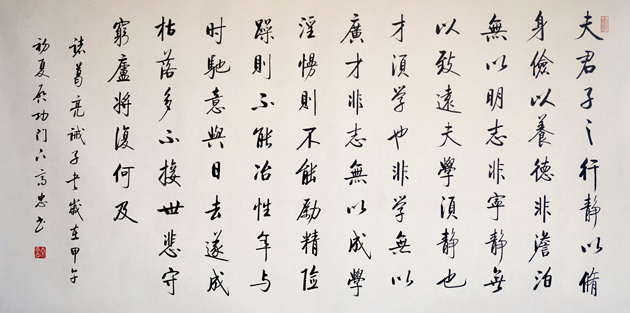 夫君子之行静以脩
身儉以養德非澹泊
無以明志非寧静無
以致遠夫學須静也
才須学也非学無以
廣才非志無以成學
淫慢則不能勵精险
躁則不能冶性年与
时馳意與日去遂成
枯落多不接世悲守
窮廬將復何及
諸葛亮誡子書歲在甲午
初夏启功门下高忠书